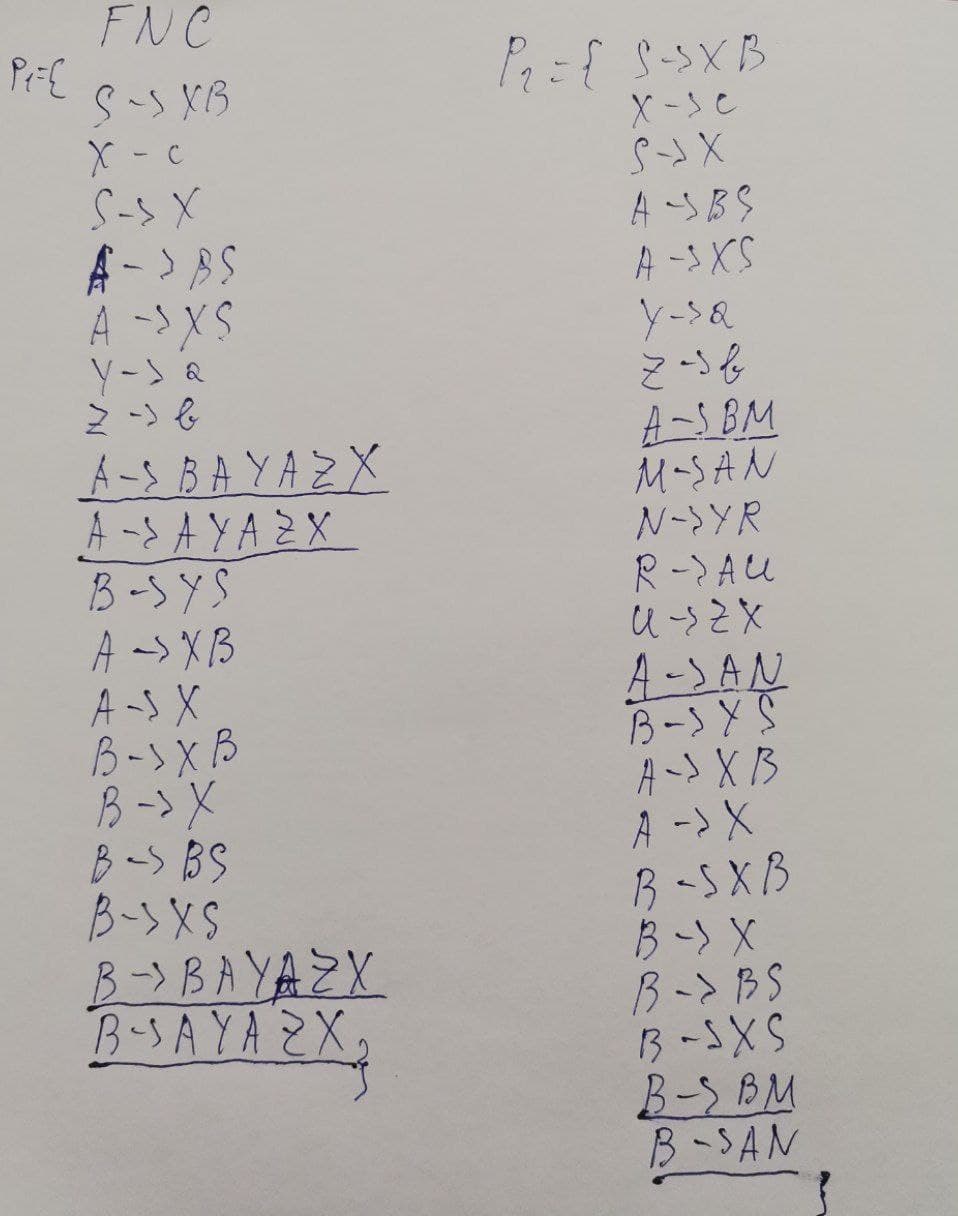 FNC
P₁={
S->XB
X-c
S->X
A->BS
A->XS
Y->a
Z->b
A->BAYAZX
A->AYAZX
B->YS
A->XB
A->X
B->XB
B->X
B->BS
B->XS
B->BAYAZX
B->AYAZX}
P₂={ S->XB
X->c
S->X
A->BS
A->XS
Y->a
Z->b
A->BM
M->AN
N->YR
R->AU
U->ZX
A->AN
B->YS
A->XB
A->X
B->XB
B->X
B->BS
B->XS
B->BM
B->AN}